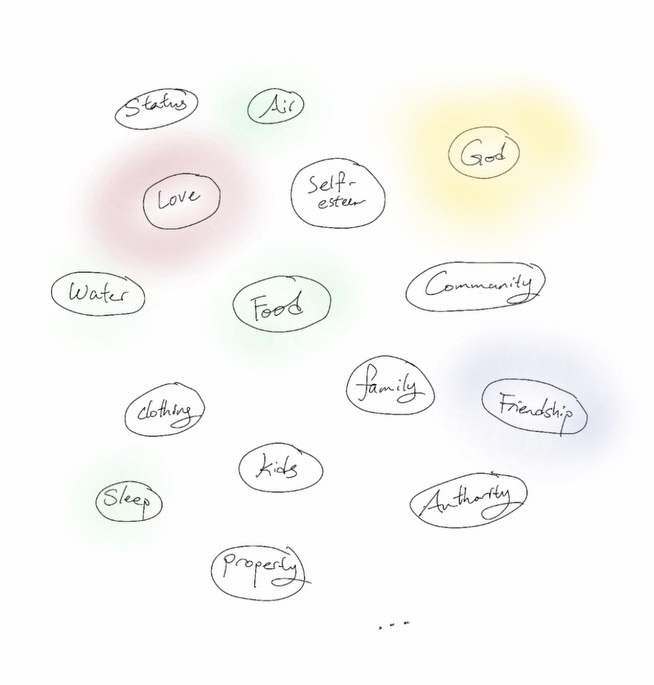 Status
Air
God
Love
Self-
esteem
Water
Food
Community
family
Friendship
clothing
kids
Sleep
Authority
property
...